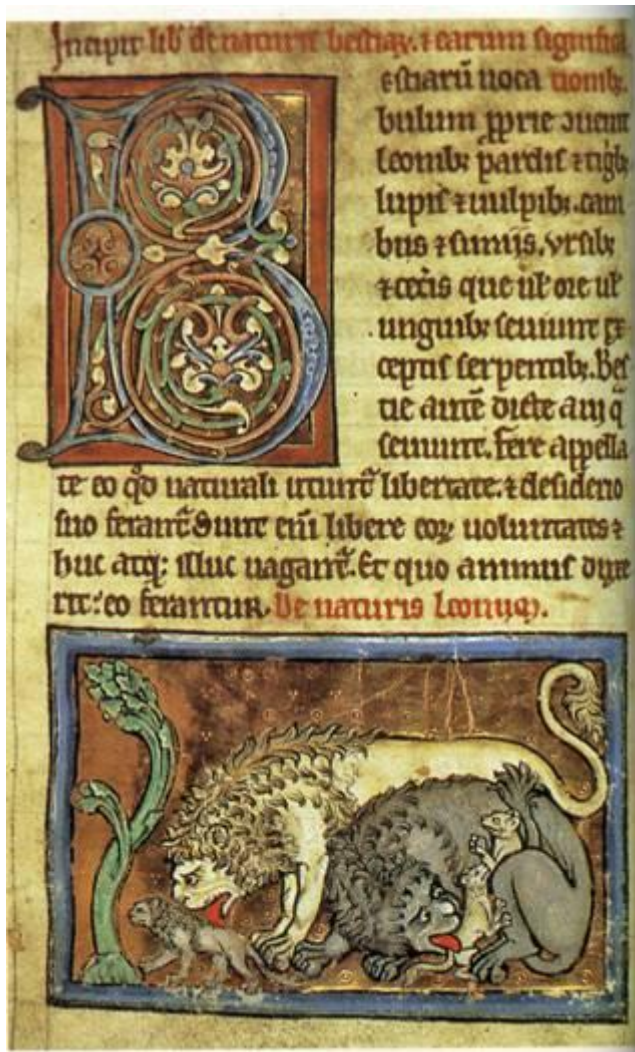 Incipit lib̃ de naturis bestiaꝝ. ⁊ earum signifiſca
B estiarũ uoca tionibꝫ.
bulum ꝓprie ↄuenit
leonibꝫ pardis ⁊ tigbꝫ
lupis ⁊ uulpibꝫ. cani
bus ⁊ simijs. vrsibꝫ
⁊ cet̃is que uł ore uł
unguibꝫ seuiunt ex
ceptis serpentibꝫ. Bes
tie autẽ dicte a ui q̃
seuiunt. Fere appella
te eo qđ naturali utunt̃ libertate. ⁊ desiderio
suo ferant̃ Sunt eñi libere eoꝝ uoluntates ⁊
huc atqꝫ illuc uagant̃. Et quo animus duxe
rit: eo ferantur. De naturis Leonuꝝ.